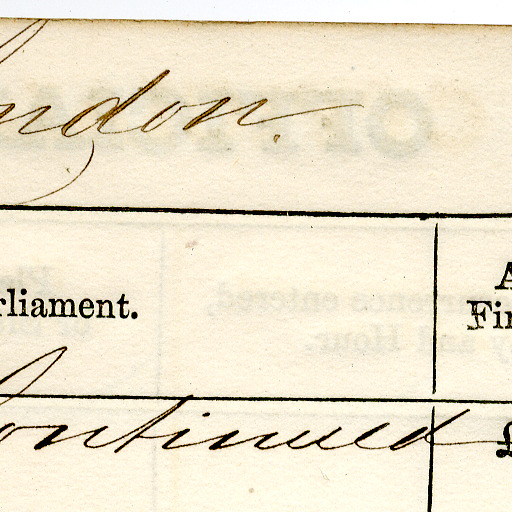 ndon.
rliament.
A
Fin
ontinued £